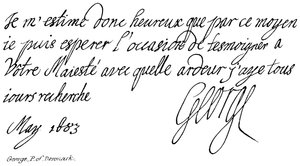 Je m'estime donc heureux que par ce moyen
ie puis esperer l'occasion de tesmoigner a
Votre Maiesté avec quelle ardeur j'aye tous
iours recherche
George
May 1683
George, P. of Denmark.